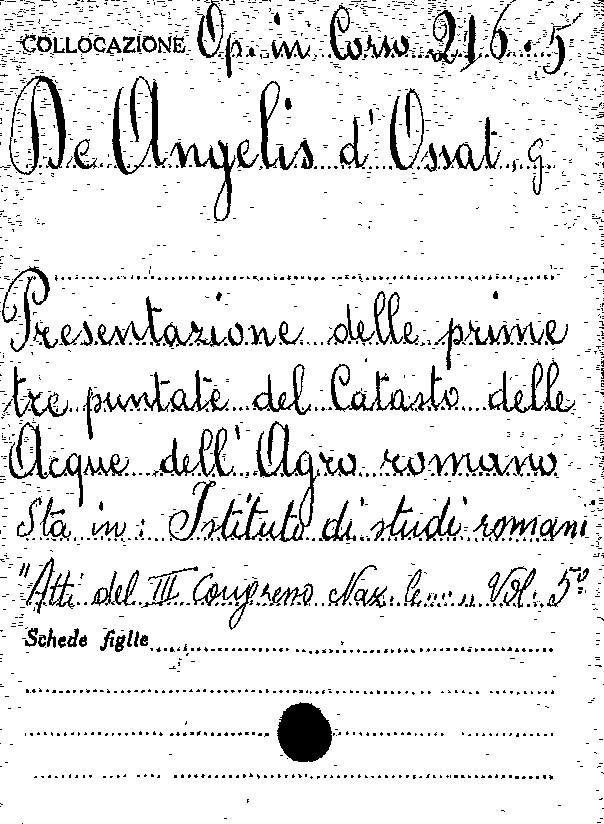 COLLOCAZIONE Op. in Corso 216.5
De Angelis d'Ossat, G.
Presentazione delle prime
tre puntate del Catasto delle
Acque dell'Agro romano
Sta in: Istituto di studi romani
"Atti del III Congresso Naz.le...." Vol. 5º
Schede figlie